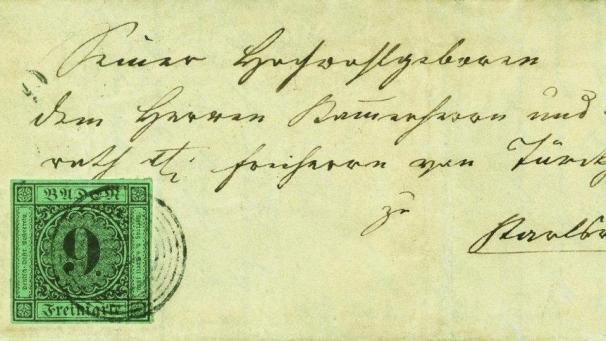 Seiner Hochwohlgeboren
dem Herren Kammerherrn und
rath Freiherrn von Türckh
zu
Karlsr
BADEN
9.
Freimarke